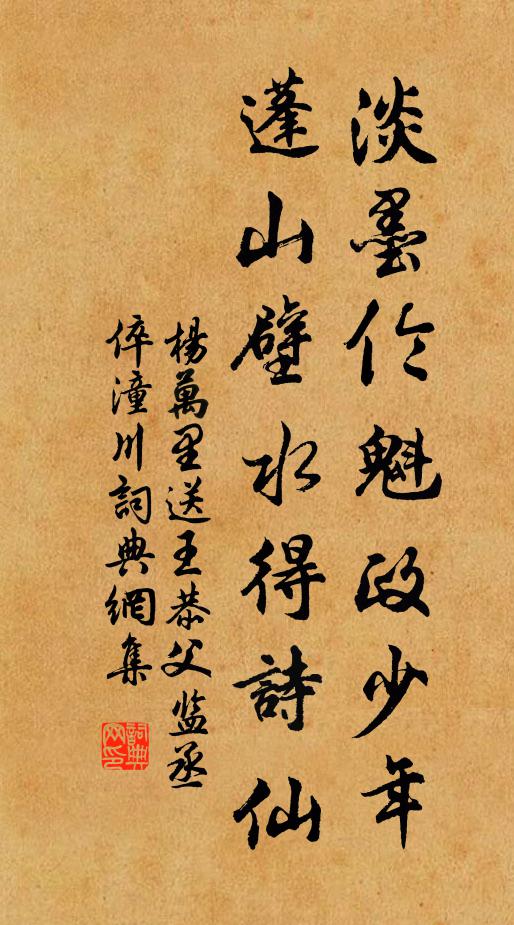 淡墨伶魁政少年
蓬山壁水得詩仙
楊萬里送王恭父监丞
倅潼川詞典網集
詞典网印